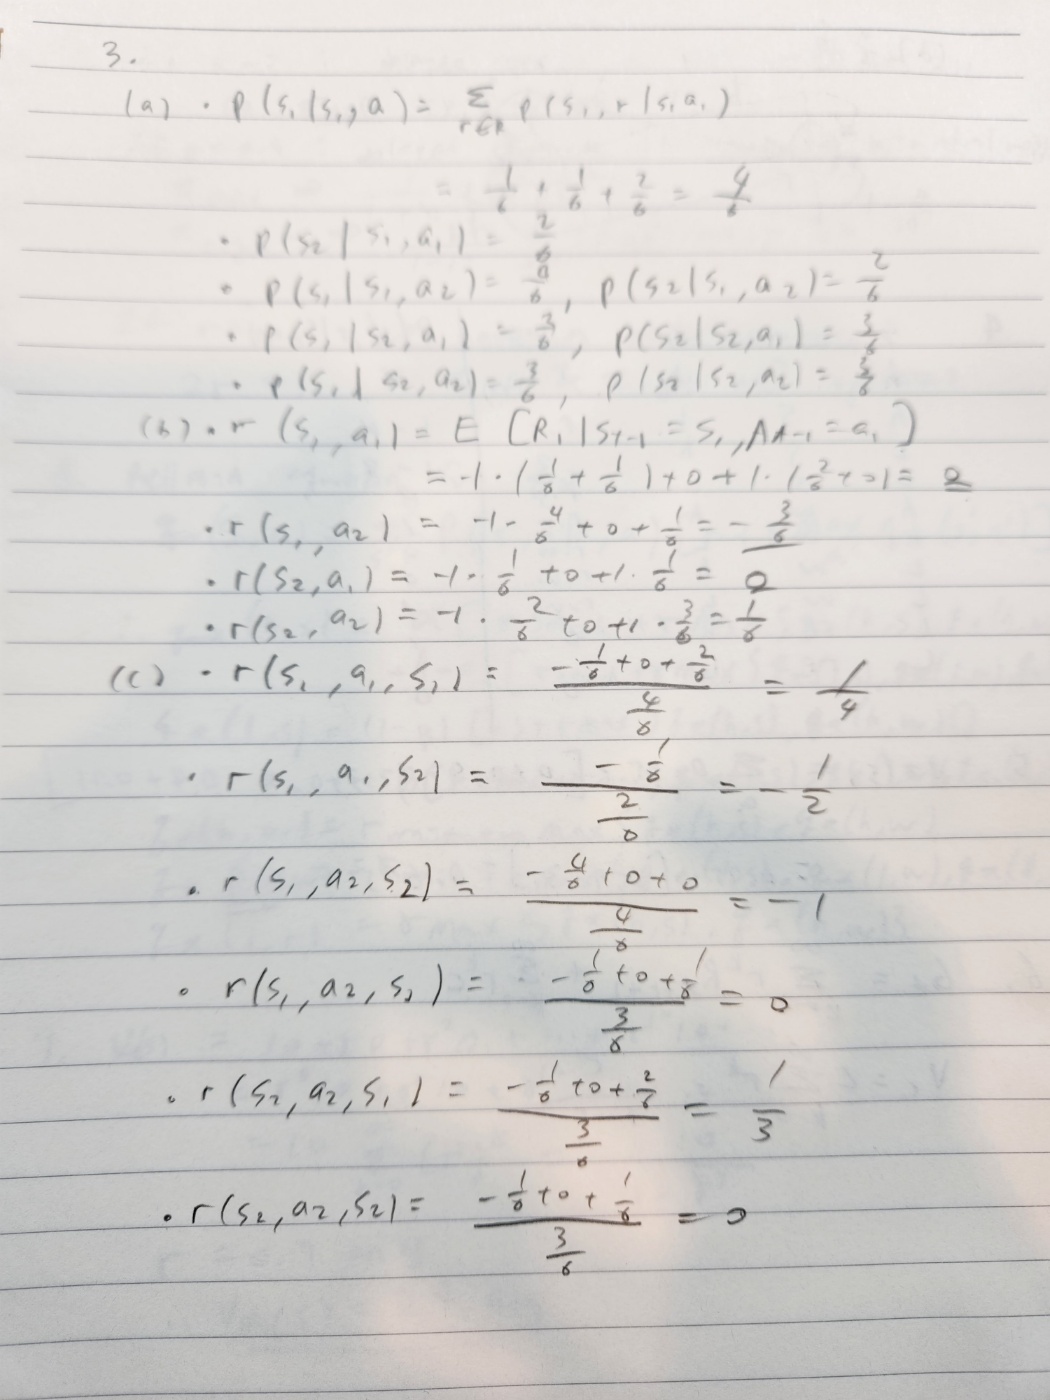 3.
(a) · p(s₁|s₁, a) = Σ_{r∈R} p(s₁, r|s₁a₁)
= 1/6 + 1/6 + 2/6 = 4/6
· p(s₂|s₁, a₁) = 2/6
· p(s₁|s₁, a₂) = /6, p(s₂|s₁, a₂) = 2/6
· p(s₁|s₂, a₁) = 3/6, p(s₂|s₂, a₁) = 3/6
· p(s₁|s₂, a₂) = 3/6, p(s₂|s₂, a₂) = 3/6
(b) · r(s₁, a₁) = E[R₁|S_{t-1} = s₁, A_{t-1} = a₁]
= -1 · (1/6 + 1/6) + 0 + 1 · (2/6 + 0) = 0
· r(s₁, a₂) = -1 · 4/6 + 0 + 1/6 = -3/6
· r(s₂, a₁) = -1 · 1/6 + 0 + 1 · 1/6 = 0
· r(s₂, a₂) = -1 · 2/6 + 0 + 1 · 3/6 = 1/6
(c) · r(s₁, a₁, s₁) = (-1/6 + 0 + 2/6) / (4/6) = 1/4
· r(s₁, a₁, s₂) = (-1/6) / (2/6) = -1/2
· r(s₁, a₂, s₂) = (-4/6 + 0 + 0) / (4/6) = -1
· r(s₁, a₂, s₂) = (-1/6 + 0 + 1/6) / (3/6) = 0
· r(s₂, a₂, s₁) = (-1/6 + 0 + 2/6) / (3/6) = 1/3
· r(s₂, a₂, s₂) = (-1/6 + 0 + 1/6) / (3/6) = 0